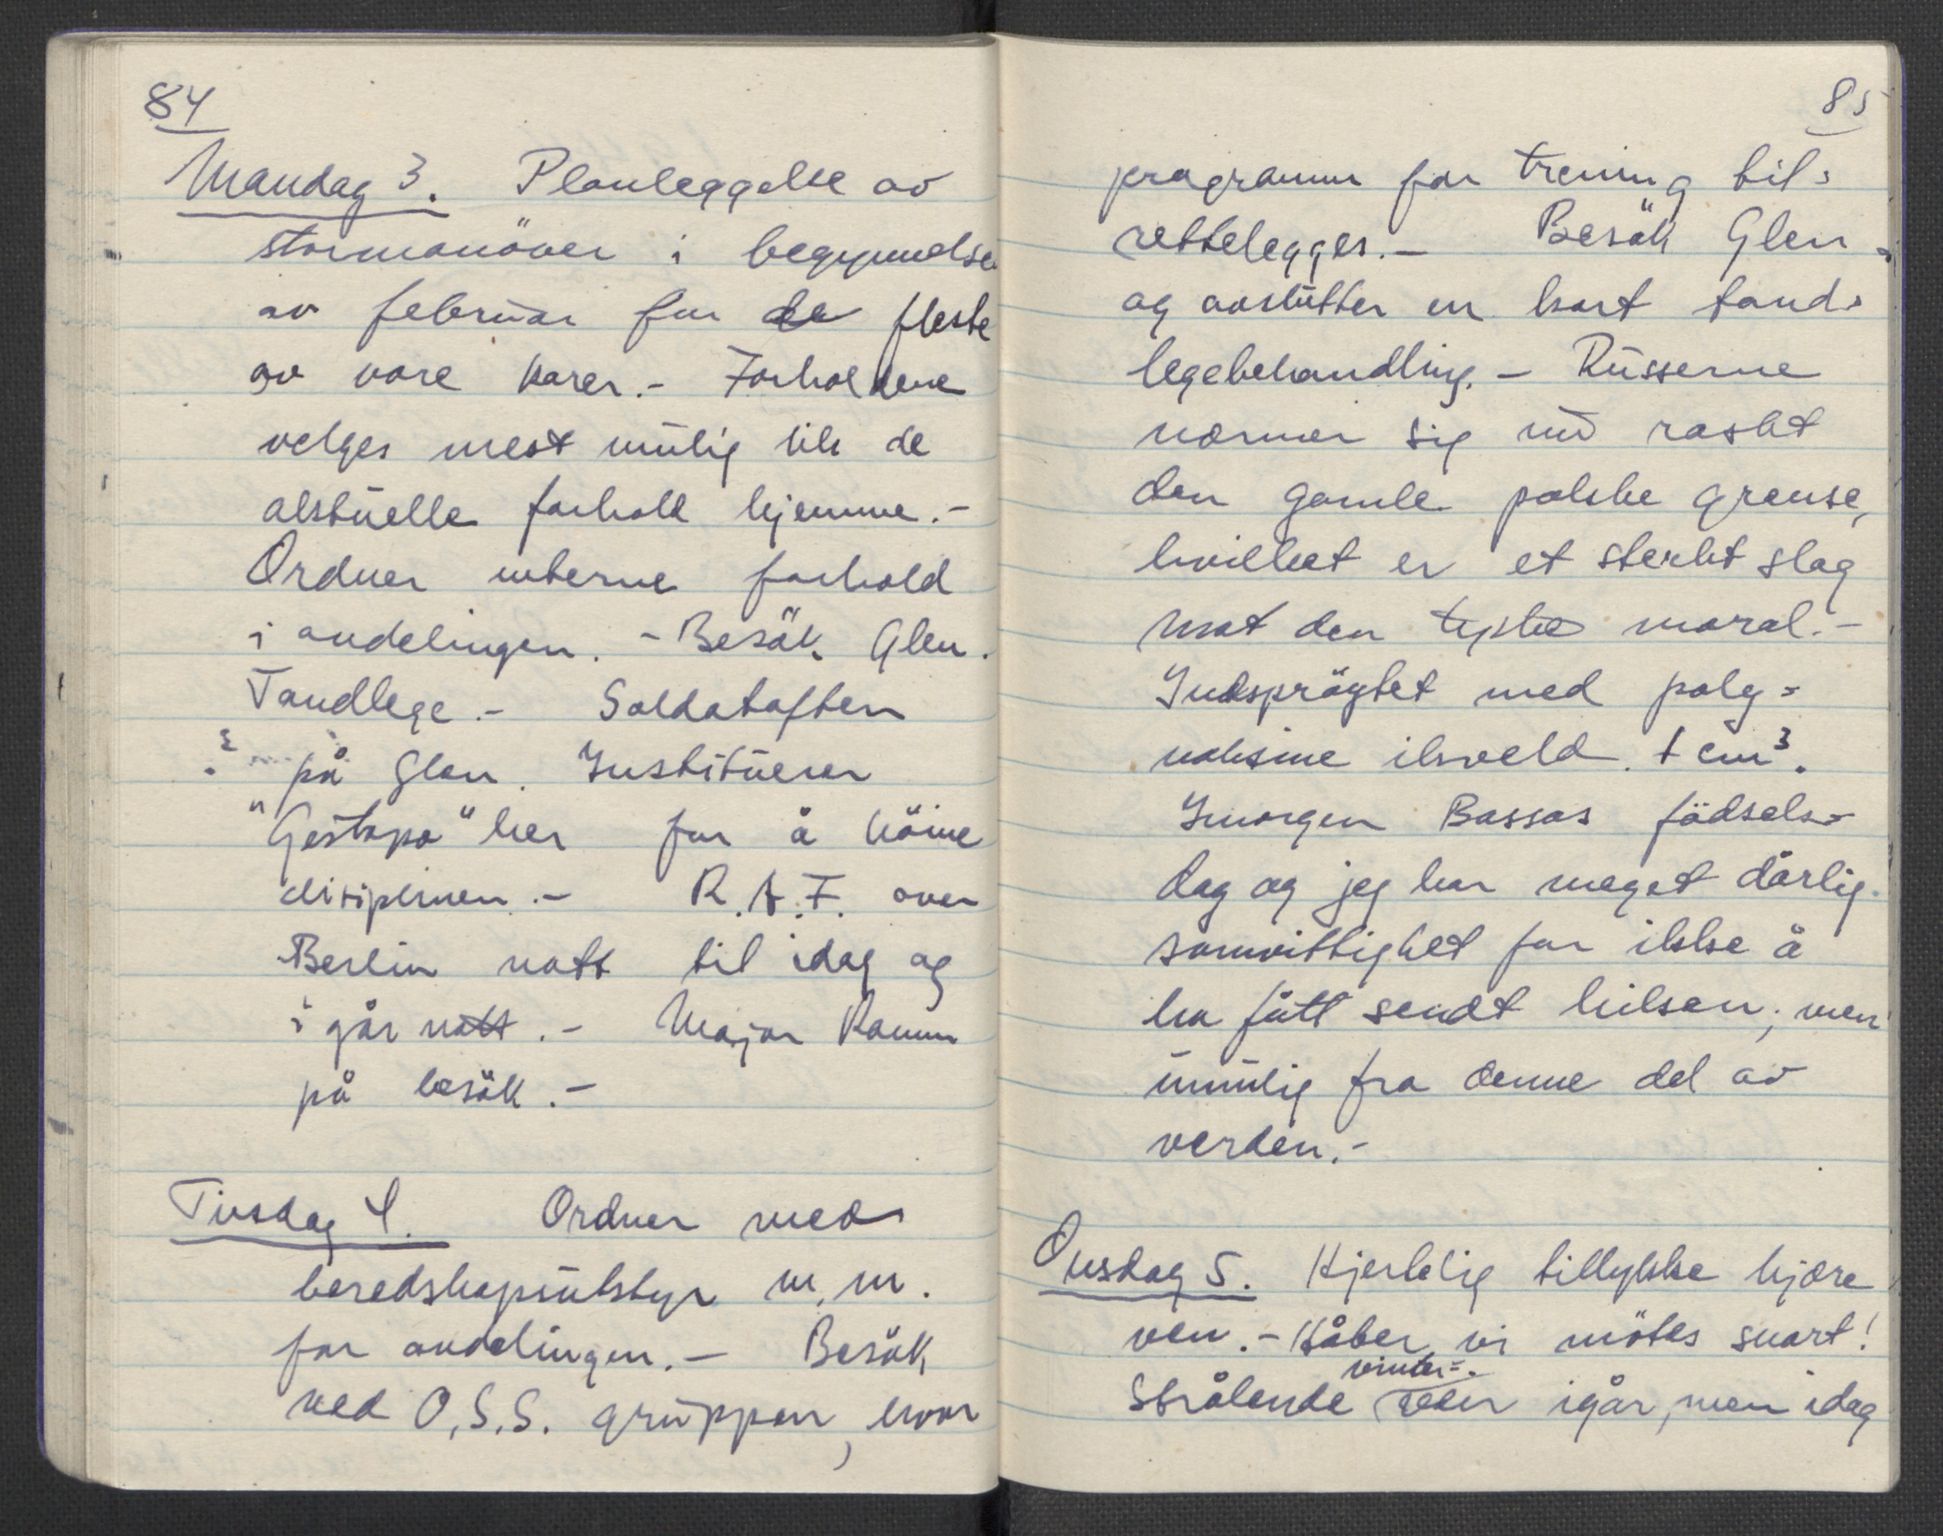 84
Mandag 3. Planleggelse av
stormanöver i begynnelsen
av februar for de fleste
av vore karer.- Forholdene
velges mest mulig lik de
aktuelle forhold hjemme.-
Ordner interne forhold
i avdelingen. - Besök Glen.
Tandlege.- Soldataften
på Glen. Instituerer
"Gestapo" her for å höine
disiplinen.- R.A.F. over
Berlin natt til idag og
i går natt.- Major Ramm
på besök.-
Tirsdag 4. Ordner med
beredskapsutstyr m.m.
for avdelingen.- Besök
ved O.S.S. gruppen, hvor
85
program for trening til=
rettelegges.- Besök Glen
og avslutter en kort tand=
legebehandling.- Russerne
nærmer sig nu raskt
den gamle polske grense,
hvilket er et sterkt slag
mot den tyske moral.-
Indspröytet med poly=
vaksine ilsveld. 1 cm³.
Imorgen Bassas födsels=
dag og jeg har meget dårlig
samvittighet for ikke å
ha fått sendt hilsen, men
umulig fra denne del av
verden.-
Onsdag 5. Hjertelig tillykke kjære
ven.- Håber vi mötes snart!
vinter=
Strålende veir igår, men idag